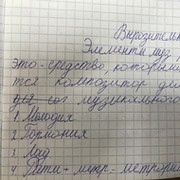 Выразительн
Элементы муз
это-средство, который
тся композитор для
музыкального
1. Мелодия
2. Гормония
3. Лад
4. Ритм-метр-метрория